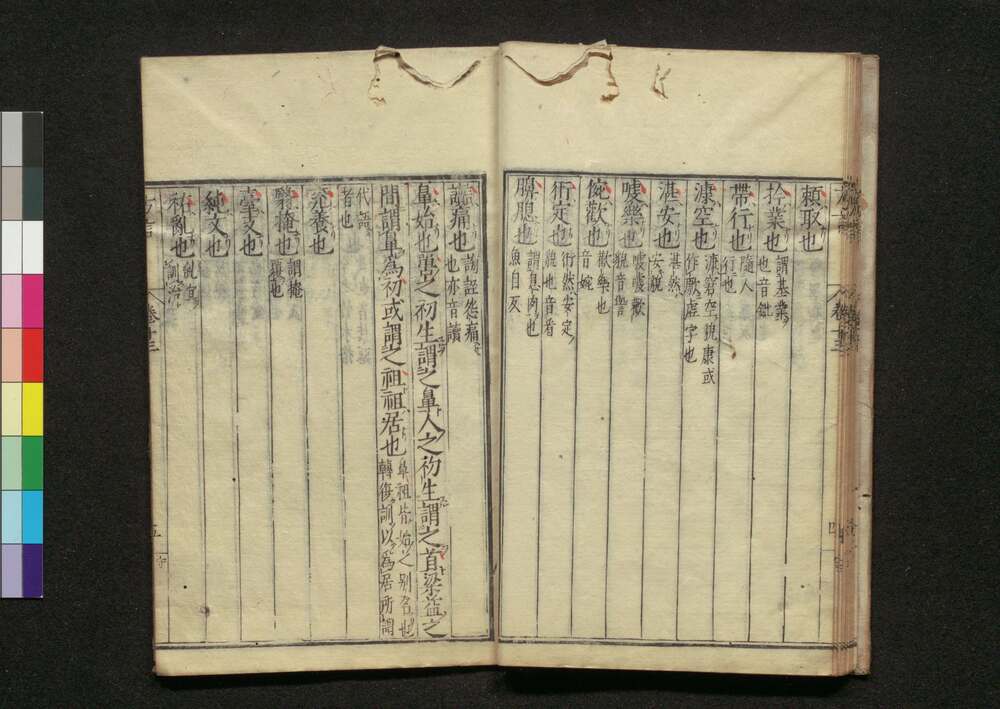 賴取也
扲業也 謂基業
也音鉗
帶行也 隨人
行也
漮空也 漮窅空貌康或
作歉虛字也
湛安也 湛然
安貌
嘕樂也 嘕嘕歡
貌音諐
惋歡也 歡樂也
音婉
衎定也 衎然安定
貌也音看
謂息肉也
魚自反
讟痛也 謗誣怨痛
也亦音讀
鼻始也嘼之初生謂之鼻人之初生謂之首梁益之
間謂鼻為初或謂之祖祖居也 鼻祖皆始之別名也
轉復訓以為居所謂
代語
者也
兖養也
翳掩也 謂掩
覆也
臺支也
純文也
祐亂也 亂宜
訓治
方言 卷十三 五